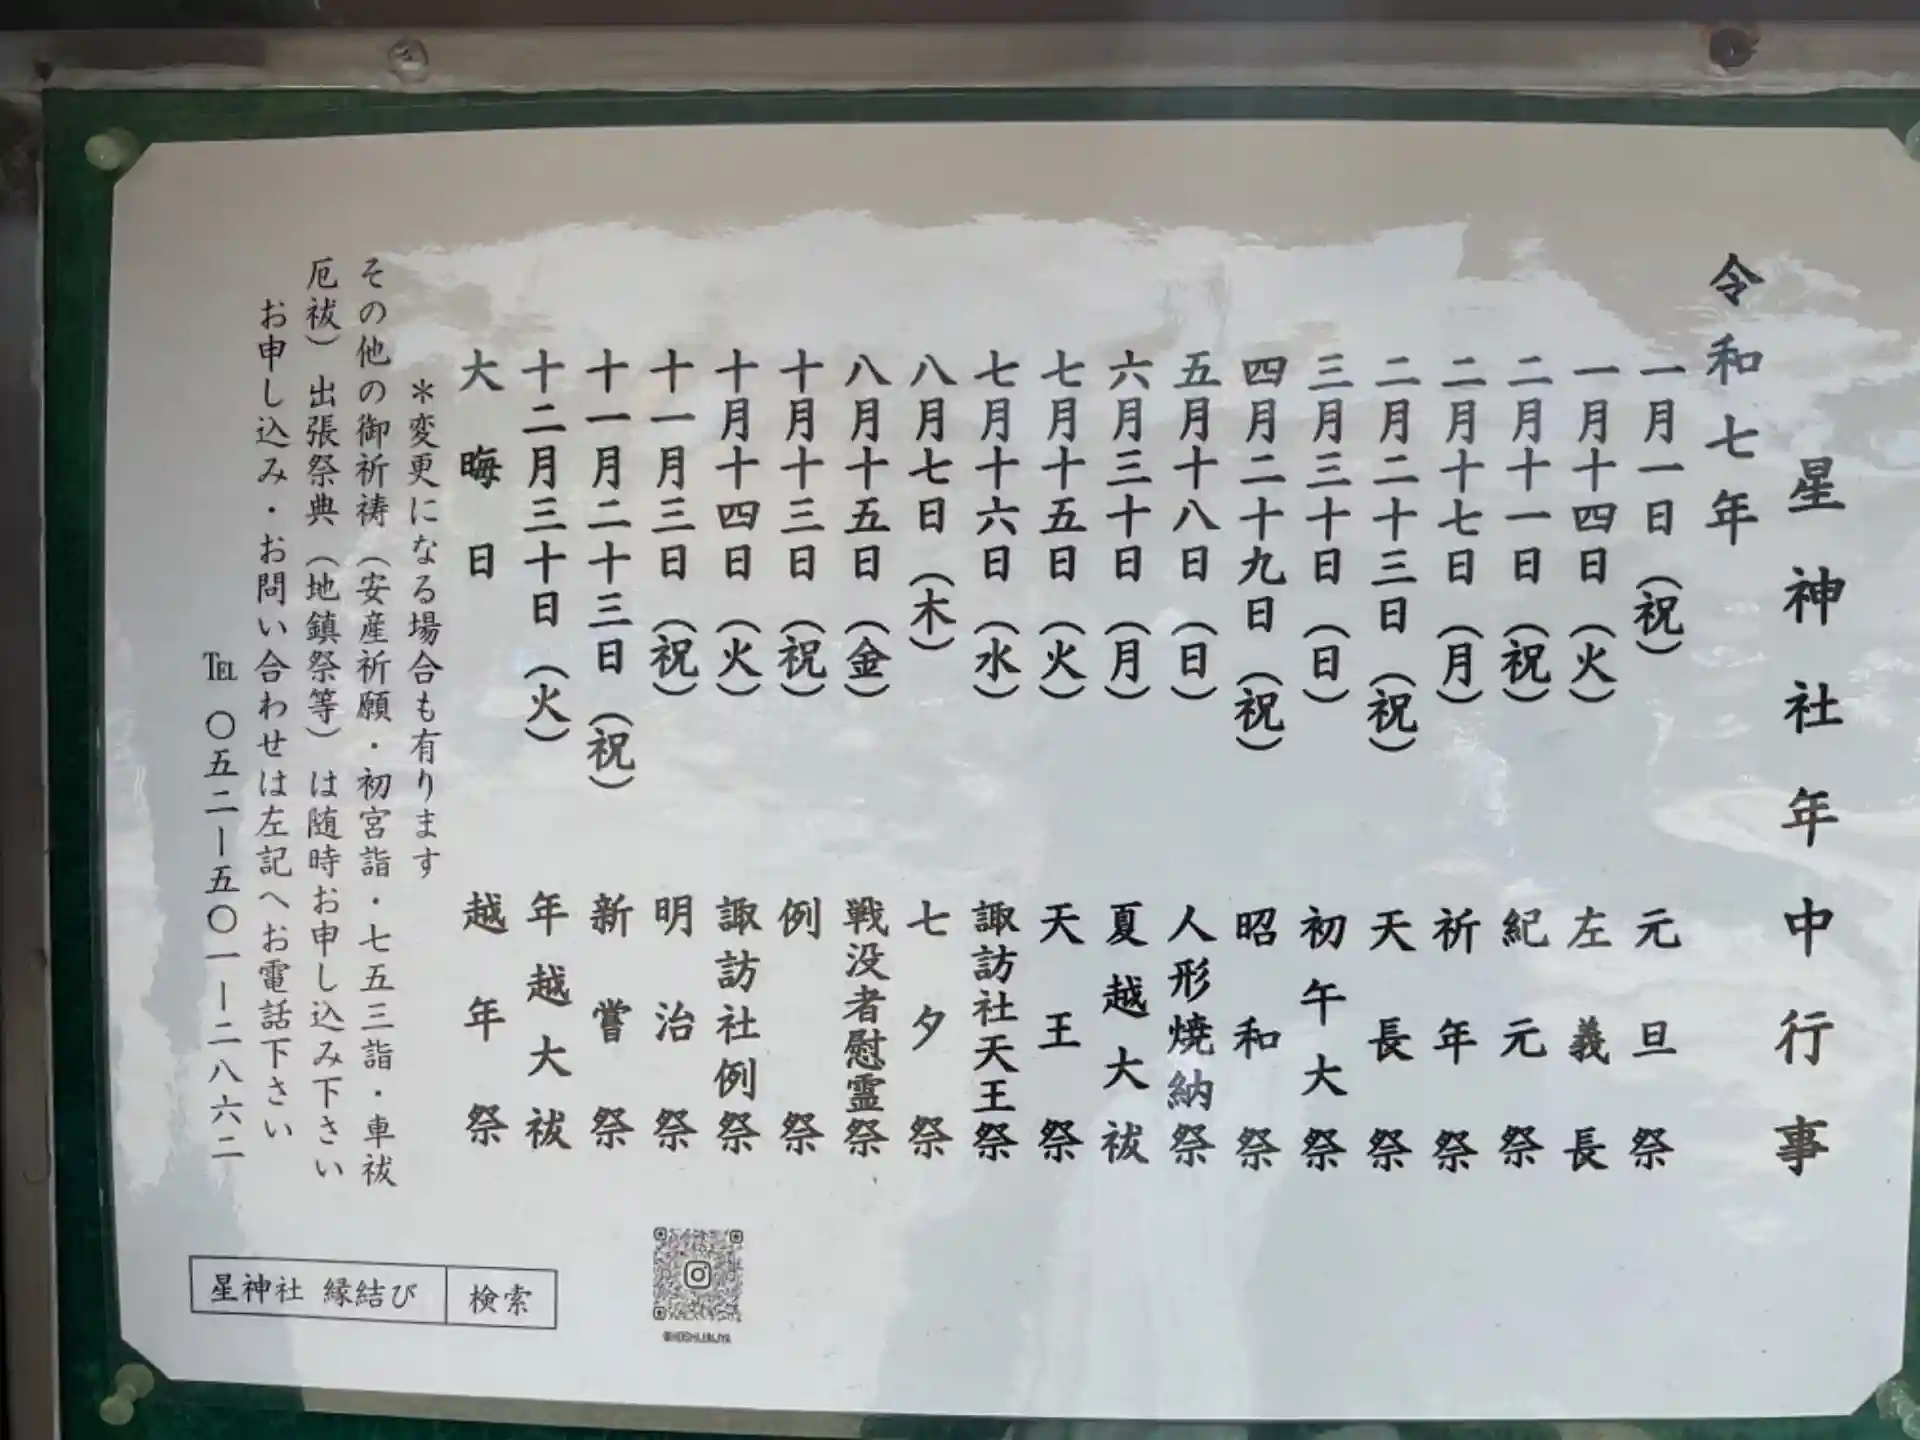 星神社年中行事
令和七年
一月一日（祝） 元旦祭
一月十四日（火） 左義長
二月十一日（祝） 紀元祭
二月十七日（月） 祈年祭
二月二十三日（祝） 天長祭
三月三十日（日） 初午大祭
四月二十九日（祝） 昭和祭
五月十八日（日） 人形焼納祭
六月三十日（月） 夏越大祓
七月十五日（火） 天王祭
七月十六日（水） 諏訪社天王祭
八月七日（木） 七夕祭
八月十五日（金） 戦没者慰霊祭
十月十三日（祝） 例祭
十月十四日（火） 諏訪社例祭
十一月三日（祝） 明治祭
十一月二十三日（祝） 新嘗祭
十二月三十日（火） 年越大祓
大晦日 越年祭
＊変更になる場合も有ります
その他の御祈祷（安産祈願・初宮詣・七五三詣・車祓
厄祓）出張祭典（地鎮祭等）は随時お申し込み下さい
お申し込み・お問い合わせは左記へお電話下さい
℡ 〇五二ー五〇一ー二八六二
@HOSHIJINJYA
星神社 縁結び 検索